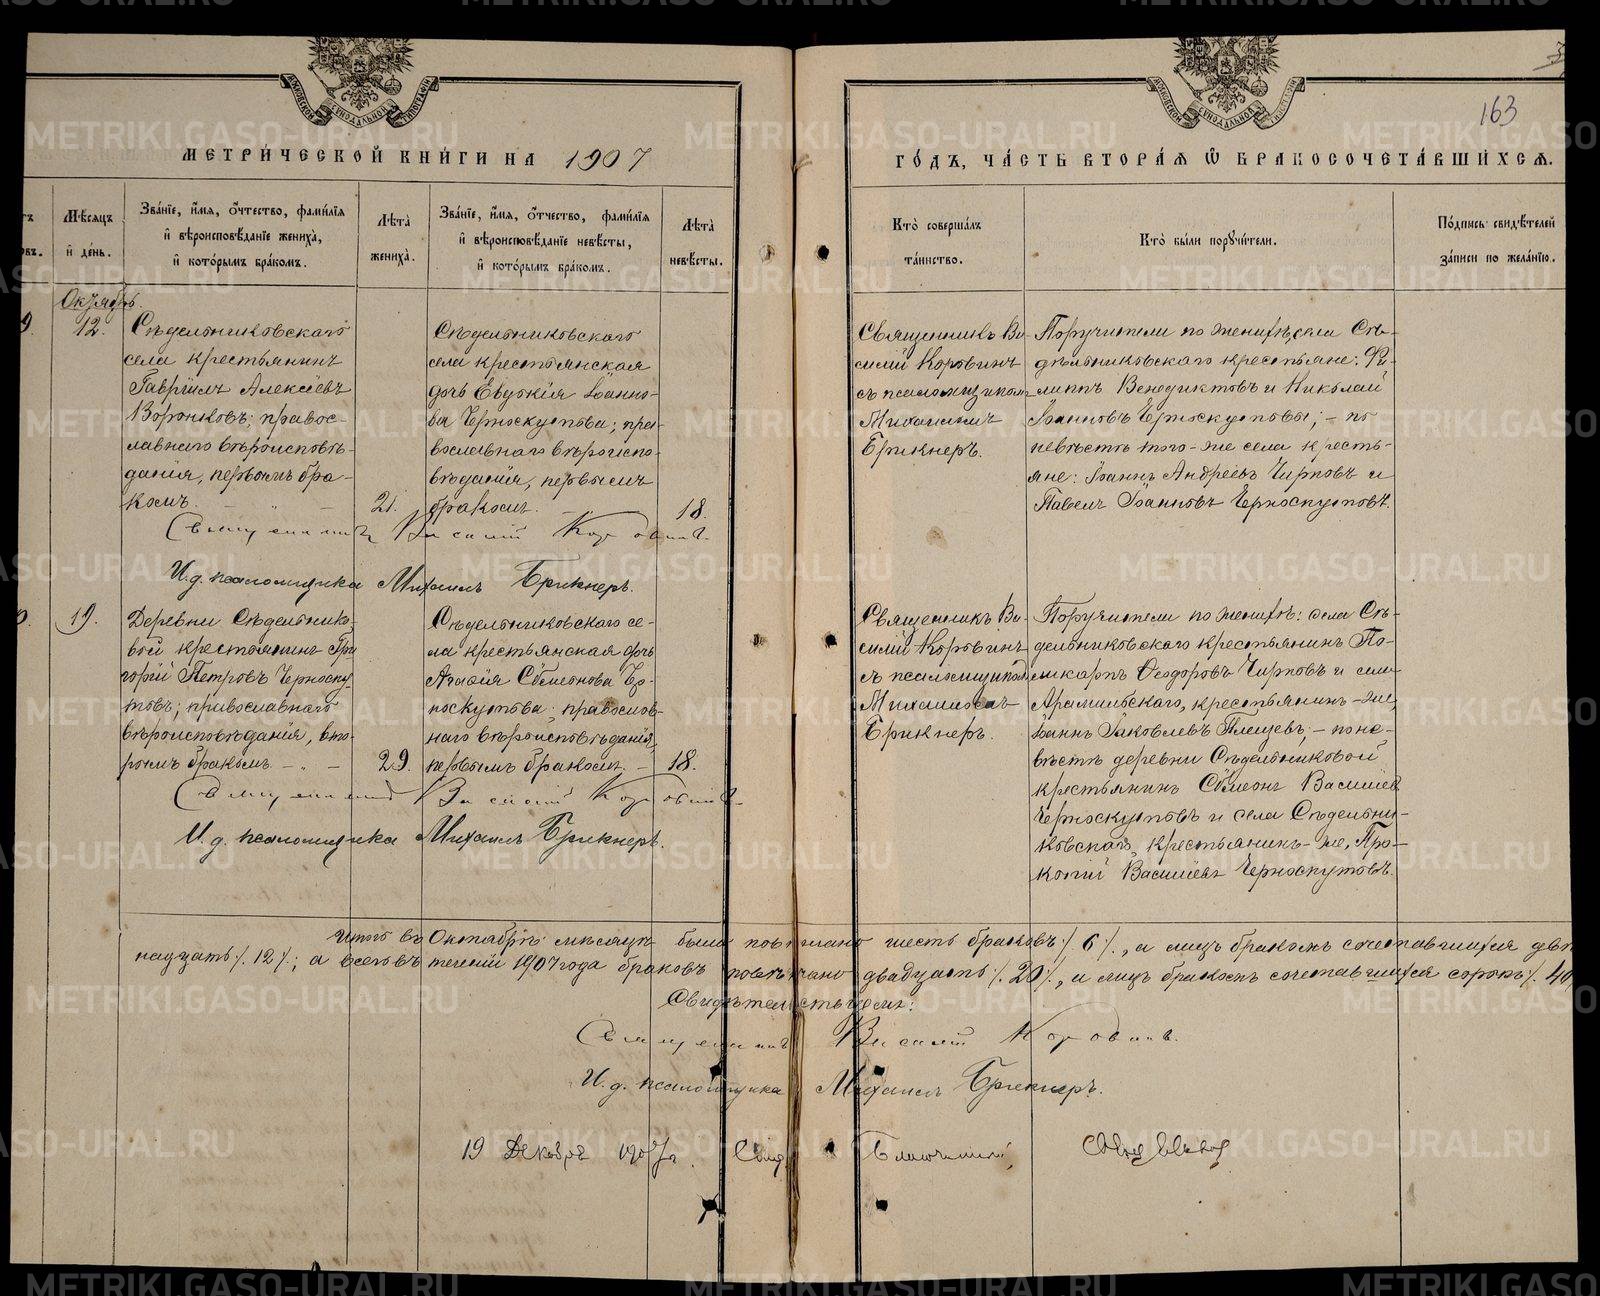 МЕТРИ́ЧЕСКОЙ КНИ́ГИ НА 1907
ГО́ДЪ, ЧА́СТЬ ВТОРА́Я Ѽ БРАКОСОЧЕТА́ВШИХСЯ.
163
Мѣ́сяцъ
и҆ де́нь.
Зва́нїе, и҆́мя, ѻ҆́тчество, фами́лїя
и҆ вѣроисповѣ́данїе жениха̀,
и҆ кото́рымъ бра́комъ.
Лѣта̀
жениха̀.
Зва́нїе, и҆́мя, ѻ҆́тчество, фами́лїя
и҆ вѣроисповѣ́данїе невѣ́сты,
и҆ кото́рымъ бра́комъ.
Лѣта̀
невѣ́сты.
Кто̀ соверша́лъ
та́инство.
Кто̀ бы́ли поручи́тели.
По́дпись свидѣ́телей
за́писи по жела́нїю.
Октябрь.
12.
Сѣдельниковскаго
села крестьянинъ
Гавріилъ Алексіевъ
Воронковъ; правос-
лавнаго вѣроисповѣ-
данія, первымъ бра-
комъ.
21.
Сѣдельниковскаго
села крестьянская
дочь Евдокія Іоанно-
ва Черноскутова; пра-
вославнаго вѣроиспо-
вѣданія, первымъ
бракомъ.
18.
Священникъ Ва-
силій Коровинъ
съ псаломщикомъ
Михаиломъ
Брикнеръ.
Поручители по женихѣ: села Сѣ-
дѣльниковскаго крестьяне: Фи-
липпъ Венедиктовъ и Николай
Іоанновъ Черноскутовы; - по
невѣстѣ того-же села кресть-
яне: Іоаннъ Андреевъ Чирковъ и
Павелъ Іоанновъ Черноскутовъ.
Священникъ Василій Коровинъ.
И.д. псаломщика Михаилъ Брикнеръ.
19.
Деревни Сѣдельнико-
вой крестьянинъ Гри-
горій Петровъ Черноску-
товъ; православнаго
вѣроисповѣданія, вто-
рымъ бракомъ.
29.
Сѣдельниковскаго се-
ла крестьянская дочь
Агафія Сѵмеонова Чер-
носкутова; православ-
наго вѣроисповѣданія,
первымъ бракомъ.
18.
Священникъ Ва-
силій Коровинъ
съ псаломщикомъ
Михаиломъ
Брикнеръ.
Поручители по женихѣ: села Сѣ-
дельниковскаго крестьянинъ По-
ликарпъ Ѳеодоровъ Чирковъ и села
Арамильскаго, крестьянинъ-же,
Іоаннъ Іаковлевъ Плещевъ; - по не-
вѣстѣ деревни Сѣдельниковой
крестьянинъ Сѵмеонъ Василіевъ
Черноскутовъ и села Сѣдельни-
ковскаго, крестьянинъ-же, Про-
копій Василіевъ Черноскутовъ.
Священникъ Василій Коровинъ.
И.д. псаломщика Михаилъ Брикнеръ.
Итого въ Октябрѣ мѣсяцѣ было повѣнчано шесть браковъ ٪ 6 ٪, а лицъ бракомъ сочетавшихся две-
надцать ٪ 12 ٪; а всего въ теченіи 1907 года браковъ повѣнчано двадцать ٪ 20 ٪, а лицъ бракомъ сочетавшихся сорокъ ٪ 40
Свидѣтельствуемъ:
Священникъ Василій Коровинъ.
И.д. псаломщика Михаилъ Брикнеръ.
19 Декабря 1907 г. Благочинный,